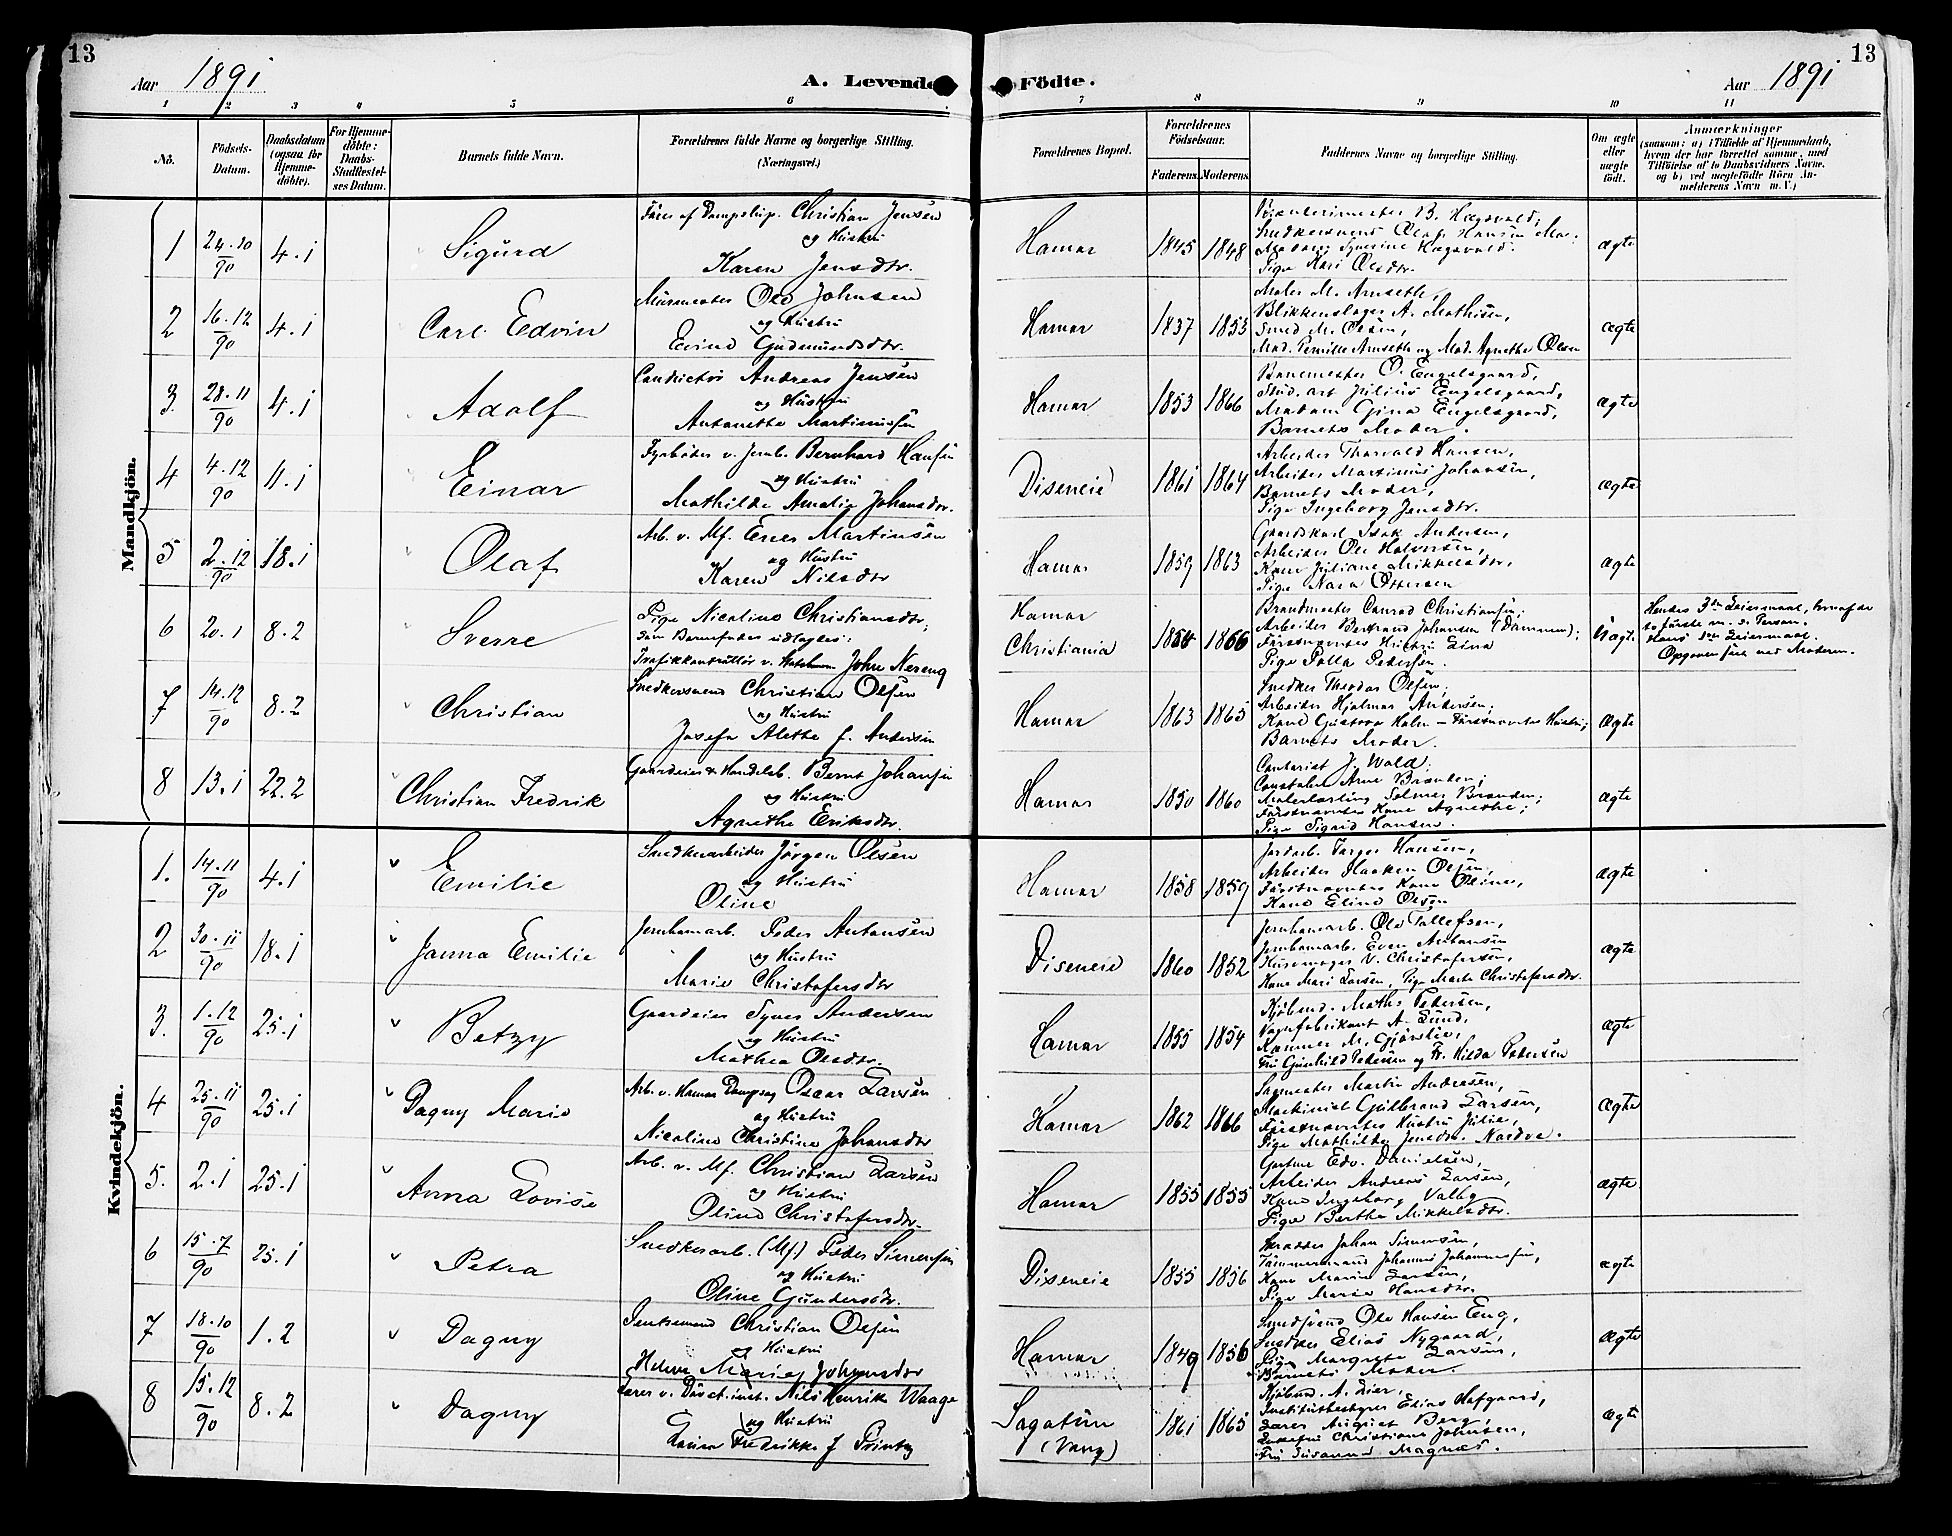 13
Aar 1891
A. Levende
Födte.
Aar 1891
13
1 2 3 4 5 6 7 8 9 10 11
No.
Födsels-Datum.
Daabsdatum (ogsaa for Hjemme-döbte).
For Hjemme-döbte: Daabs-Stadfæstel-ses Datum.
Barnets fulde Navn.
Forældrenes fulde Navne og borgerlige Stilling. (Næringsvei.)
Forældrenes Bopæl.
Forældrenes Födselsaar.
Faderens. Moderens.
Faddernes Navne og borgerlige Stilling.
Om ægte eller uægte födt.
Anmærkninger
(saasom: a) i Tilfælde af Hjemmedaab, hvem der har forrettet samme, med Tilföielse af to Daabsvidners Navne, og b) ved uægtefödte Börn An-melderens Navn m. V.)
Mandkjön.
1 24.10/90 4.1 Sigurd
Förer af Dampskip. Christian Jensen
og Hustru
Karen Jensdtr.
Hamar 1845 1848
B. Hagsvold,
Snedkersvend Olaf Hansen
Madam Hagsvold.
Pige Kari Olsdtr.
ægte
2 16.12/90 4.1 Carl Edvin
Murmester Ole Johnsen
og Hustru
Eline Gudmundsdtr.
Hamar 1837 1853
Maler M. Amseth,
Blikkenslager A. Mathisen,
Smed M. Olsen,
Mad. Pernille Amseth og Mad. Agnethe Olsen
ægte
3. 28.11/90 4.1 Adolf
Conductör Andreas Jensen
og Hustru
Antonette Martinusen
Hamar 1853 1866
Banemester O. Engelsgaard,
Stud. art Julius Engelsgaard,
Madam Gina Engelsgaard,
Barnets Moder.
ægte
4 4.12/90 11.1 Einar
Fyrböder v. Jernb. Bernhard Hansen
og Hustru
Mathilde Amalie Johansdtr.
Diseneie 1861 1864
Arbeider Thorvald Hansen,
Arbeider Martinius Johansen,
Barnets Moder,
Pige Ingeborg Jensdtr.
ægte
5 2.12/90 18.1 Olaf
Arb. v. Mf. Ener Martinsen
og Hustru
Karen Nilsdtr
Hamar 1859 1863
Gaardskarl Isak Andersen,
Arbeider Ole Halvorsen,
Kone Juliane Mikkelsdtr,
Pige Nara Ottersen
ægte
6 20.1 8.2 Sverre
Pige Nicoline Christiansdtr;
som Barnefader udlagdes:
Trafikkontrollör v. John Nereng
Hamar
Christiania 1854 1866
Brandmester Conrad Christiansen;
Arbeider Bertrand Johansen (Dammen);
Förstnævntes Hustru Lina
Pige Polla Pedersen.
Uægte
Hendes 3die Leiermaal, hvoraf de
to förste m. s. Person.
Hans 1ste Leiermaal.
Opgaven fra ved Moderen.
7 14.12/90 8.2 Christian
Snedkersvend Christian Olsen
og Hustru
Josefa Alethe f. Andersen
Hamar 1863 1865
Snedker Theodor Olsen;
Arbeider Hjalmar Andersen;
Kone Gustava Holm - Förstnævntes Hustru;
Barnets Moder.
ægte
8 13.1 22.2 Christian Fredrik
Gaardeier & Handelsb. Bernt Johansen
og Hustru
Agnethe Eriksdtr.
Hamar 1850 1860
Contorist J. Wold;
Constabel Arne Brænden;
Malerlærling Selmer Brænden;
Förstnævntes Kone Agnethe;
Pige Sigrid Hansen.
ægte
Kvindekjön.
1. 14.11/90 4.1 Emilie
Snedkerarbeider Jörgen Olsen
og Hustru
Oline
Hamar 1858 1859
Jordarb. Torger Hansen,
Arbeider Haaken Olsen,
Förstnævntes Kone Oline,
Kone Eline Olsen
ægte
2 30.11/90 18.1 Janna Emilie
Jernbanearb. Peder Antonsen
og Hustru
Marie Christofersdtr
Diseneie 1860 1852
Jernbanearb. Ole Tollefsen,
Jernbanearb. Even Antonsen
Husemager V. Christofersen,
Kone Mari Larsen, Pige Marte Christofersdtr.
ægte
3. 1.12/90 25.1 Betzy
Gaardeier Syver Andersen
og Hustru
Mathea Olsdtr.
Hamar 1855 1854
Kjöbmd. Maths Pedersen,
Vognfabrikant A. Lund,
M. Gjörslie,
Fru Gunhild Pedersen og Fr. Hilda Pedersen
ægte
4 25.11/90 25.1 Dagny Marie
Arb. v. Hamar Dampsag Oscar Larsen
og Hustru
Nicoline Christine Johansdtr
Hamar 1862 1866
Sagmester Martin Andresen,
Maskinist Gulbrand Larsen,
Förstnævntes Hustru Julie,
Pige Mathilde Jensdtr.
ægte
5. 2.1 25.1 Anna Lovise
Arb. v. Mf. Christian Larsen
og Hustru
Oline Christofersdtr.
Hamar 1855 1855
Gartner Edv. Danielsen,
Arbeider Andreas Larsen,
Kone Ingeborg Valby
Pige Berthe Mikkelsdtr.
ægte
6 15.7/90 25.1 Petra
Snedkerarb. (Mf.) Peder Simensen
og Hustru
Oline Gundersdtr.
Diseneie 1855 1856
Skrædder Johan Simensen,
Tömmermand Johannes Johannesen,
Kone Marie Larsen,
Pige Marie Hansdtr.
ægte
7 18.10/90 1.2 Dagny
Christian Olsen
og Hustru
Helene Marie Johansdtr
Hamar 1849 1856
Ole Hansen Eng,
Snedker Elias Nygaard,
Pige Margrete Larsen,
Barnets Moder.
ægte
8 15.12/90 8.2 Dagny
Lærer v. Döveinst. Nils Henrik Waage
og Hustru
Laura Fredrikke f. Printz
Sagatun
(Vang) 1861 1865
Kjöbmd. A. Lier,
Institutbestyrer Elias Hofgaard,
Lærer August Berg,
Christiane Johnsen,
Fru Susanne Magnæs.
ægte